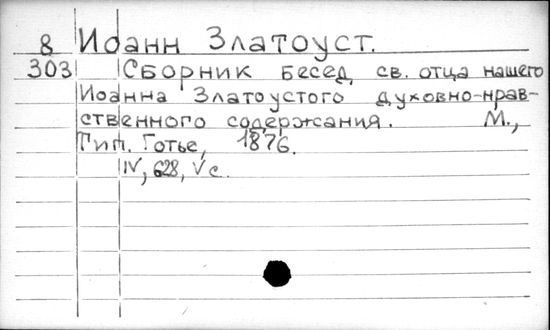 8 Иоанн Златоуст.
303 Сборник бесед св. отца нашего
Иоанна Златоустого духовно-нрав-
ственного содержания. М.,
Тип. Готье, 1876.
IV, 628, V с.